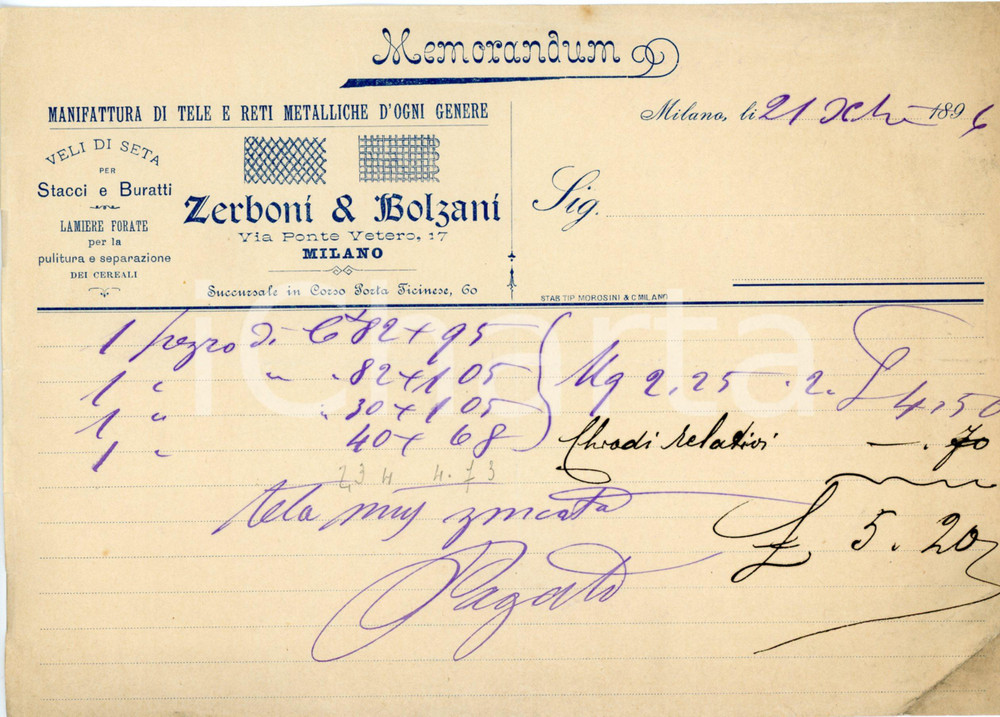 Memorandum
MANIFATTURA DI TELE E RETI METALLICHE D'OGNI GENERE
VELI DI SETA
PER
Stacci e Buratti
LAMIERE FORATE
per la
pulitura e separazione
DEI CEREALI
Zerboni & Bolzani
Via Ponte Vetero, 17
MILANO
Succursale in Corso Porta Ticinese, 60
Milano, li 21 Xbre 1896
Sig.
STAB. TIP. MOROSINI & C. MILANO
1 pezzo di Ct 82 + 95
1 " " " 82 + 105
1 " " 30 + 105
1 " 40 + 68
Mq 2,25 . 2. £ 4,50
Chiodi relativi —. 70
2,34 4.73
tela zincata
£ 5.20
Pagato
iCharta